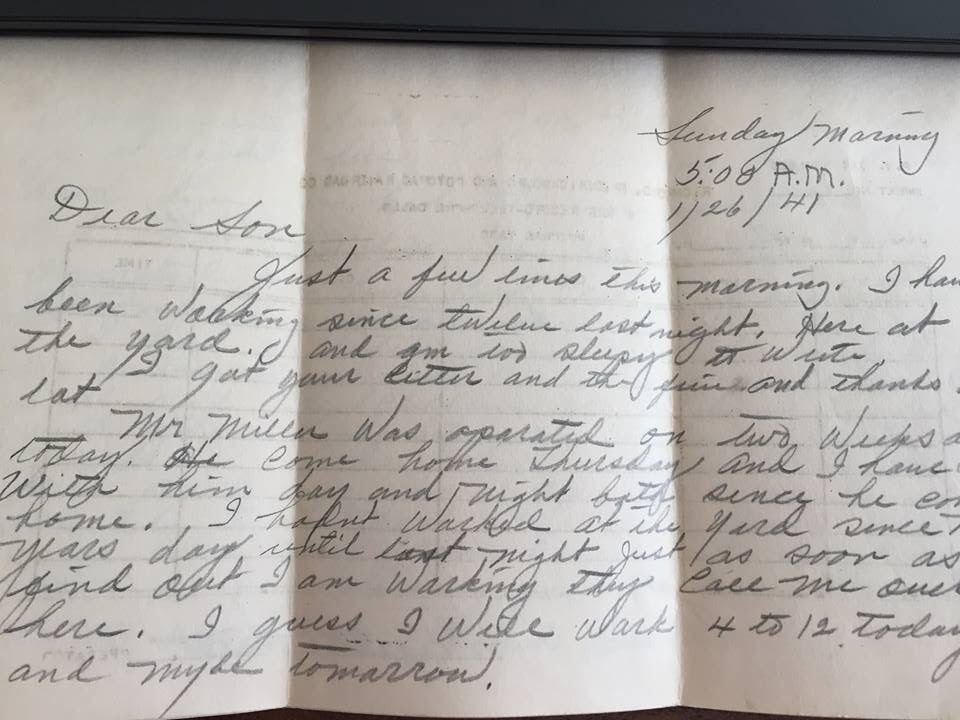 Sunday Morning
5:08 A.M.
1/26/41
Dear Son
Just a few lines this morning. I hav
been Working since twelve last night. Here at
the yard. and am too sleepy to Write.
I got your letter and the and thanks a
lot
Mr Miller Was oparated on two Weeks a
today. He come home Thursday and I have
With him day and Night both since he com
home. I hapnt Worked at the Yard since N
years day, until last night Just as soon as
find out I am Working they Call Me over
here. I guess I Will Work 4 to 12 today
and mybe tomarrow.